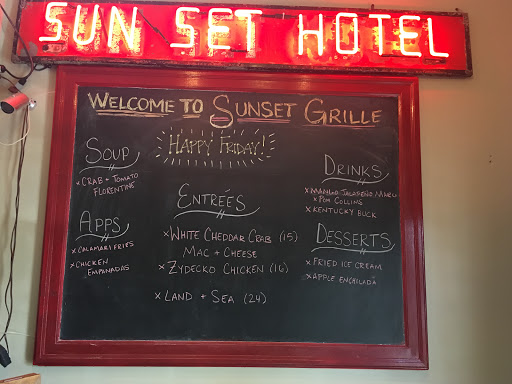 SUN SET HOTEL
WELCOME TO SUNSET GRILLE
HAPPY FRIDAY!
SOUP
x CRAB + TOMATO
FLORENTINE
APPS
x CALAMARI FRIES
x CHICKEN
EMPANADAS
ENTRÉES
x WHITE CHEDDAR CRAB (15)
MAC + CHEESE
x ZYDECKO CHICKEN (16)
x LAND + SEA (24)
DRINKS
x JALAPEÑO
x POM COLLINS
x KENTUCKY BUCK
DESSERTS
x FRIED ICE CREAM
x APPLE ENCHILADA